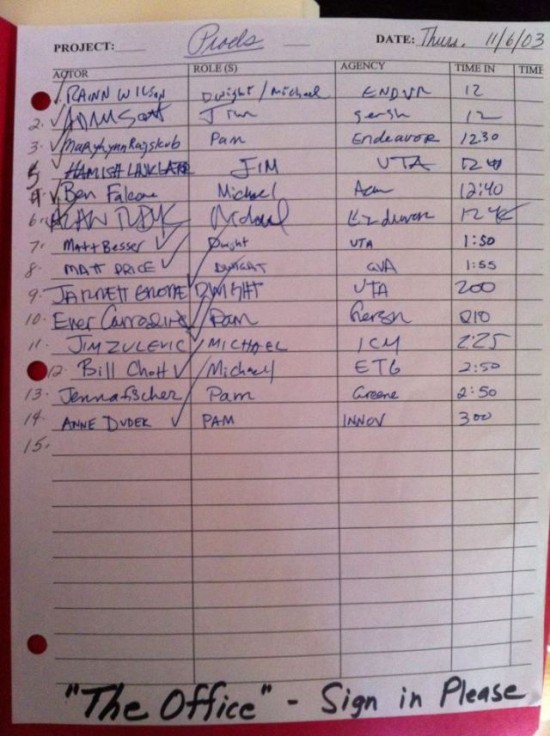 PROJECT: Prods DATE: Thurs. 11/6/03
ACTOR ROLE (S) AGENCY TIME IN TIME
1. ✓ RAINN WILSON Dwight / Michael ENDVR 12
2. ✓ ADAM Scott Jim gersh 12
3. ✓ MaryLynn Rajskub Pam Endeavor 12:30
5 HAMISH LINKLATER JIM UTA
4. ✓ Ben Falcone Michael 12:40
6. ALAN Michael Endeavor
7. Matt Besser ✓ Dwight UTA 1:50
8. MATT PRICE ✓ DWIGHT GVA 1:55
9. DWIGHT UTA 200
10. Ever Carradine ✓ Pam Gersh 210
11. JIM ZULEVIC ✓ MICHAEL ICM 2:25
12. Bill Chott ✓ Michael ETG 2:50
13. Jenna fischer Pam Greene 2:50
14. ANNE DUDEK ✓ PAM INNOV 300
15.
"The Office" - Sign in Please